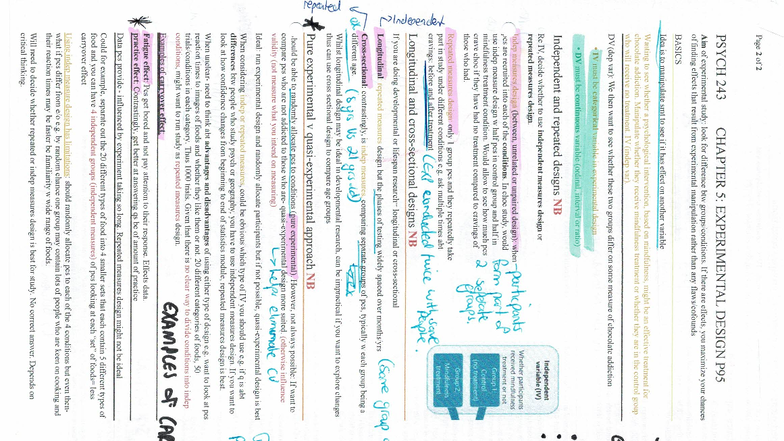 Page 2 of 2
PSYCH 243 CHAPTER 5: EXPERIMENTAL DESIGN P95
Aim of experimental study: look for difference btw groups/conditions. If there are effects, you maximize your chances
of finding effects that result from experimental manipulation rather than any flaws/cofounds
BASICS
Idea is to manipulate one IV to see if it has effect on another variable
Wanting to see whether a psychological intervention, based on mindfulness, might be an effective treatment for
chocolate addiction. Manipulate whether they receive mindfulness treatment or whether they are in the control group
who will receive no treatment. IV (indep var)
DV (dep var): We then want to see whether these two groups differ on some measure of chocolate addiction
* IV must be categorical variable in experimental design
* DV must be continuous variable (ordinal, interval or ratio)
Independent and repeated designs NB
Re IV, decide whether to use independent measures design or
repeated measures design.
Indep measures design (between, unrelated or unpaired design): when
pcs are recruited into each of the conditions. In choc study, would
use indep measures design w half pcs in control group and half in
mindfulness treatment condition. Would allow to see how much pcs
crave choc if they have had no treatment compared to cravings of
those who had.
participants
form part of
2 seperate
groups.
Repeated measures design: only 1 group pcs and they repeatedly take
part in study under different conditions e.g. ask multiple times abt
cravings, before and after treatment
(Exp conducted twice with same
people.
Independent
variable (IV)
Whether participants
received mindfulness
treatment or not
Group 1:
Control
(no treatment)
Group 2:
Mindfulness
treatment
Longitudinal and cross-sectional designs NB
If you are doing developmental or lifespan research - longitudinal or cross-sectional
Longitudinal: repeated measures design but the phases of testing widely spaced over months/yrs
(same group o
repeated
Independent
Cross-sectional: contrastingly, is indep measures, comparing separate groups of pcs, typically w each group being a
different age.
Whilst longitudinal studies may be ideal in developmental research, can be impractical if you want to explore changes
thus can use cross sectional design to compare age groups
Pure experimental v quasi-experimental approach NB
Should be able to randomly allocate pcs to conditions (pure experimental). However, not always possible. If want to
compare pcs who are not addicted to those who are- quasi-experimental design more suited. (otherwise influence
validity (not measure what you intend on measuring)
↳ helps eliminate CV
Ideal: run experimental design and randomly allocate participants but if not possible, quasi-experimental design is best
When considering indep or repeated measures, could be obvious which type of IV you should use e.g. if q is abt
differences btw people who study psych or geography, you have to use independent measures design. If you want to
look at how confidence changes from beginning to end of statistics module, repeated measures design is best.
When unclear- need to think abt advantages and disadvantages of using either type of design e.g. want to look at pcs
reaction times to images of foods and whether they like them or not. 20 different categories of foods, 50
trials/conditions in each category. Thus 1000 trials. Given that there is no clear way to divide conditions into indep
conditions, might want to run study as repeated measures design.
Examples of carryover effect:
EXAMPLES OF CAR
Fatigue effect: Pcs get bored and stop pay attention to their response. Effects data.
practice effect: Contrastingly, get better at answering qs bc of amount of practice
Data pcs provide - influenced by experiment taking so long. Repeated measures design might not be ideal
Could for example, separate out the 20 different types of food into 4 smaller sets that each contain 5 different types of
food and you can have 4 independent groups (independent measures) of pcs looking at each 'set' of foods= less
carryover effect
Using indep measures design has limitations: should randomly allocate pcs to each of the 4 conditions but even then-
what if pcs differ from e/o e.g. by random chance one group may contain lots of people who are keen on cooking and
their reaction times may be faster bc familiar w wide range of foods.
Will need to decide whether repeated or indep measures design is best for study. No correct answer. Depends on
critical thinking.